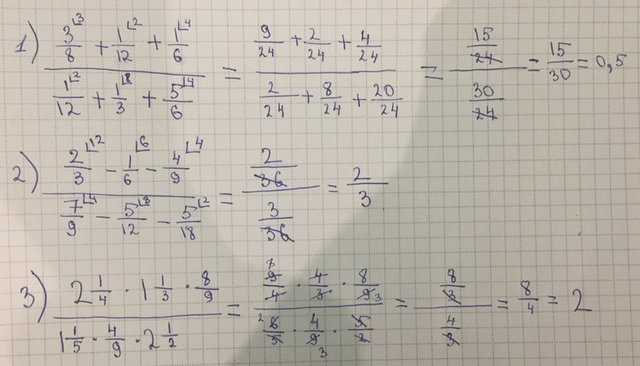 1) (3/8 ⌞3 + 1/12 ⌞2 + 1/6 ⌞4) / (1/12 ⌞2 + 1/3 ⌞8 + 5/6 ⌞4) = (9/24 + 2/24 + 4/24) / (2/24 + 8/24 + 20/24) = (15/24) / (30/24) = 15/30 = 0,5
2) (2/3 ⌞12 - 1/6 ⌞6 - 4/9 ⌞4) / (7/9 ⌞4 - 5/12 ⌞3 - 5/18 ⌞2) = (2/36) / (3/36) = 2/3
3) (2 1/4 · 1 1/3 · 8/9) / (1 1/5 · 4/9 · 2 1/2) = (9/4 · 4/3 · 8/9 3) / (2 6/5 · 4/9 3 · 5/2) = (8/3) / (4/3) = 8/4 = 2